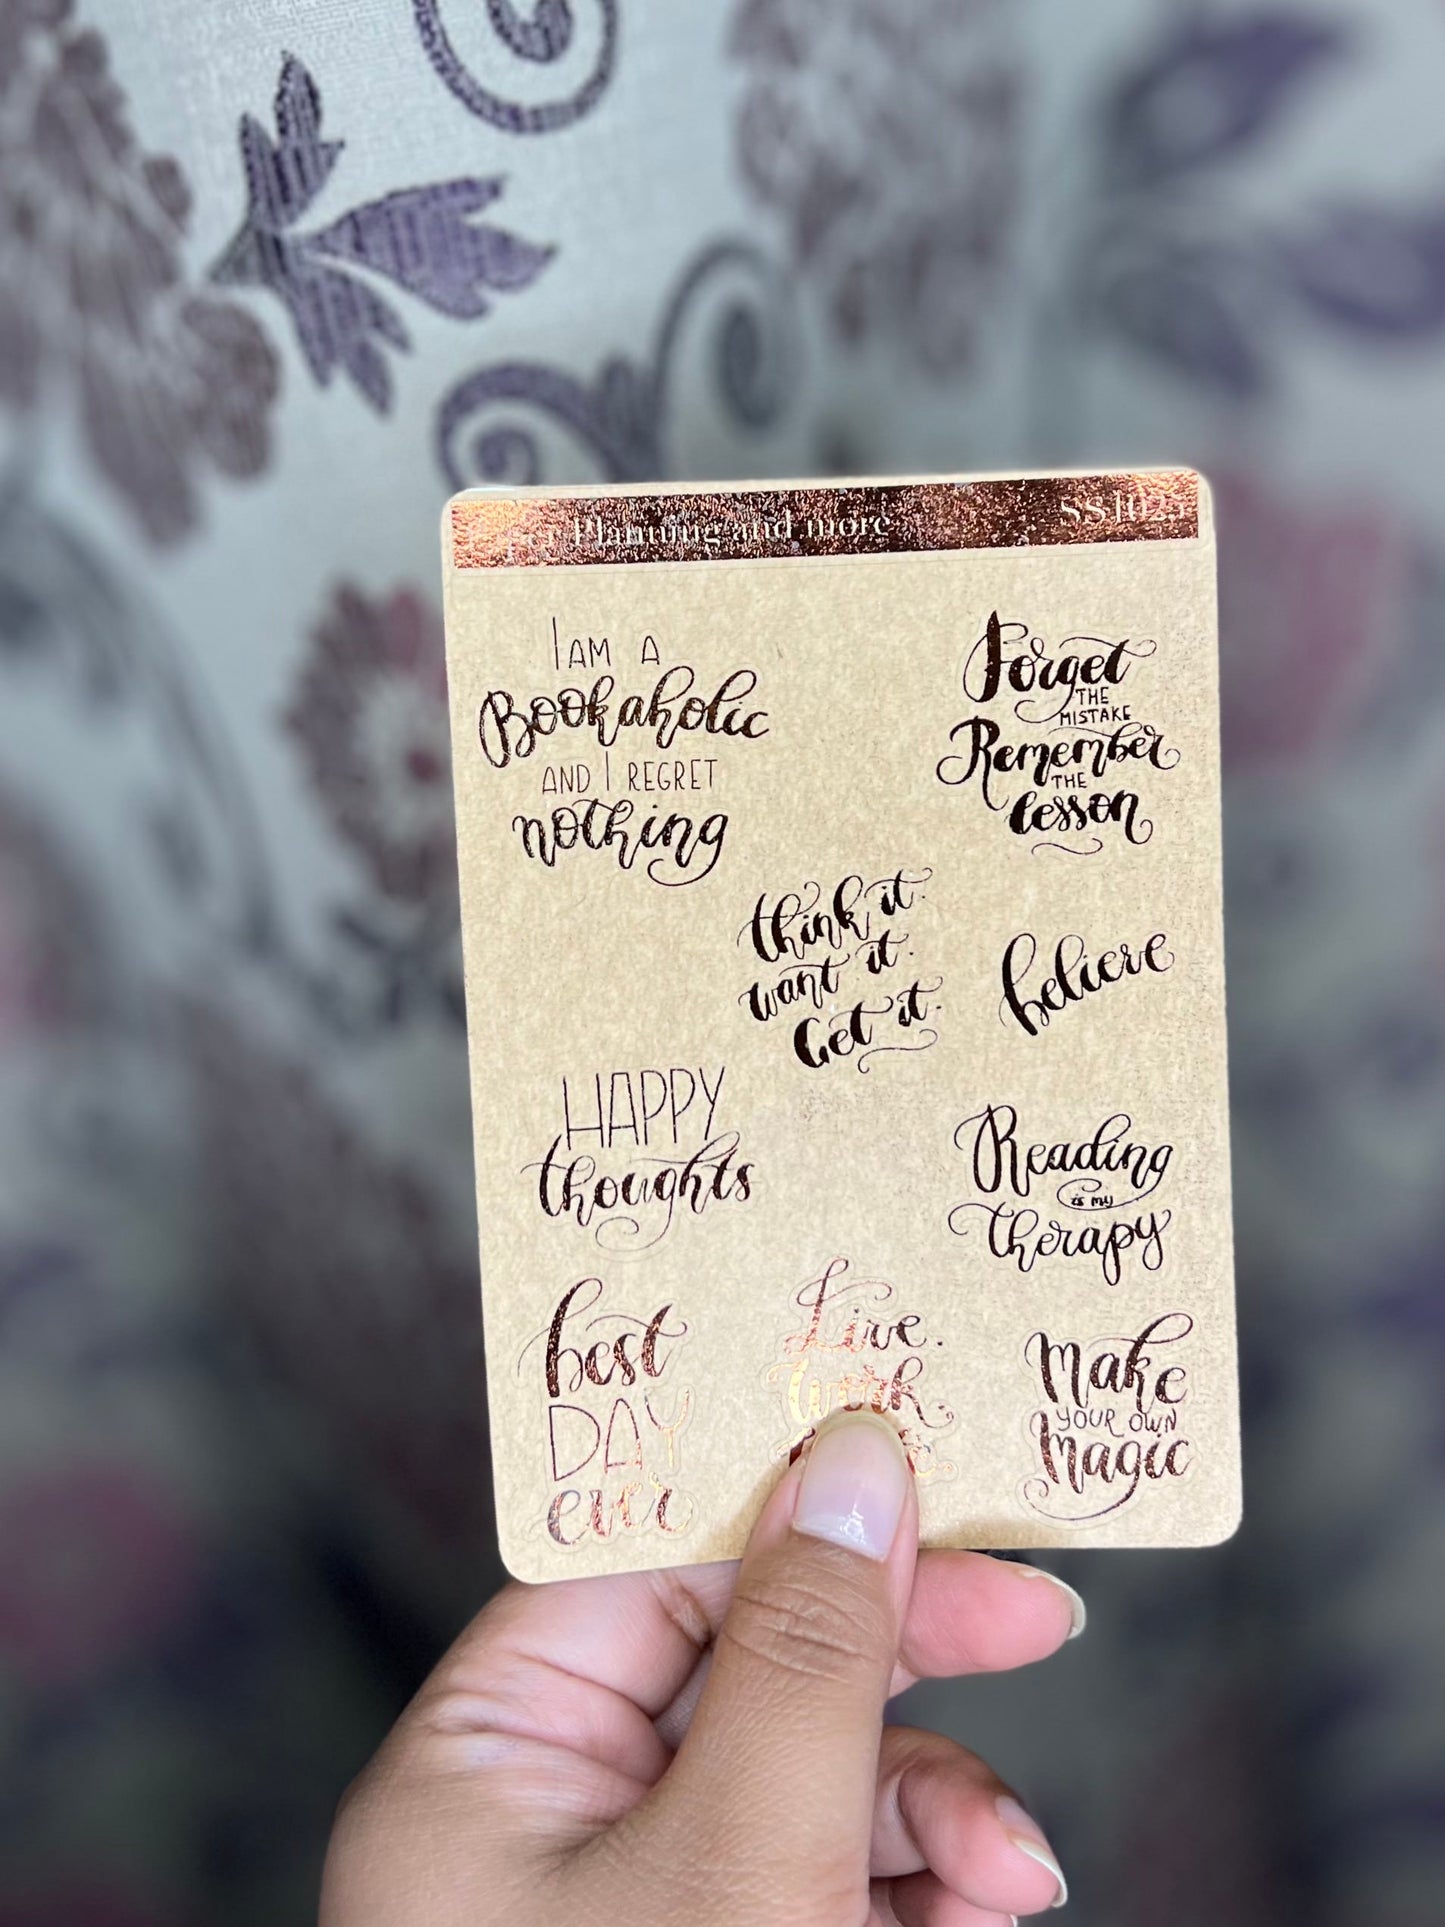 Planning and more
SS1025
I AM A
Bookaholic
AND I REGRET
nothing
Forget
THE
MISTAKE
Remember
THE
lesson
think it.
want it.
Get it.
believe
HAPPY
thoughts
Reading
is my
Therapy
best
DAY
ever
Live.
Work.
Make
YOUR OWN
Magic